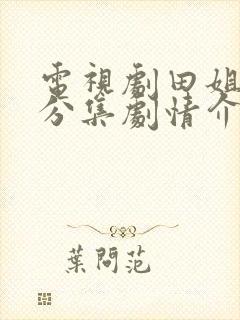 電視劇田姐
分集劇情介
葉問范